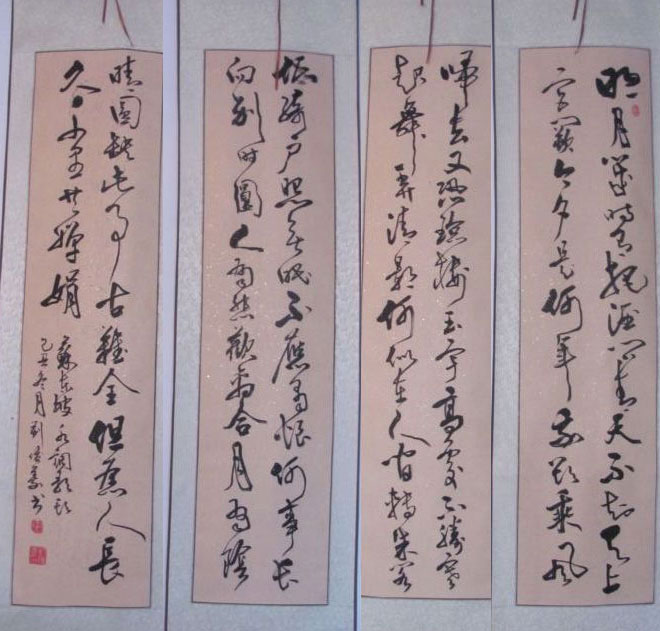 明月幾時有把酒問青天不知天上
宮闕今夕是何年我欲乘風
歸去又恐瓊樓玉宇高處不勝寒
起舞弄清影何似在人間轉朱閣
低綺戶照無眠不應有恨何事長
向別時圓人有悲歡離合月有陰
晴圓缺此事古難全但願人長
久千里共嬋娟
蘇東坡水調歌頭
己丑冬月劉書